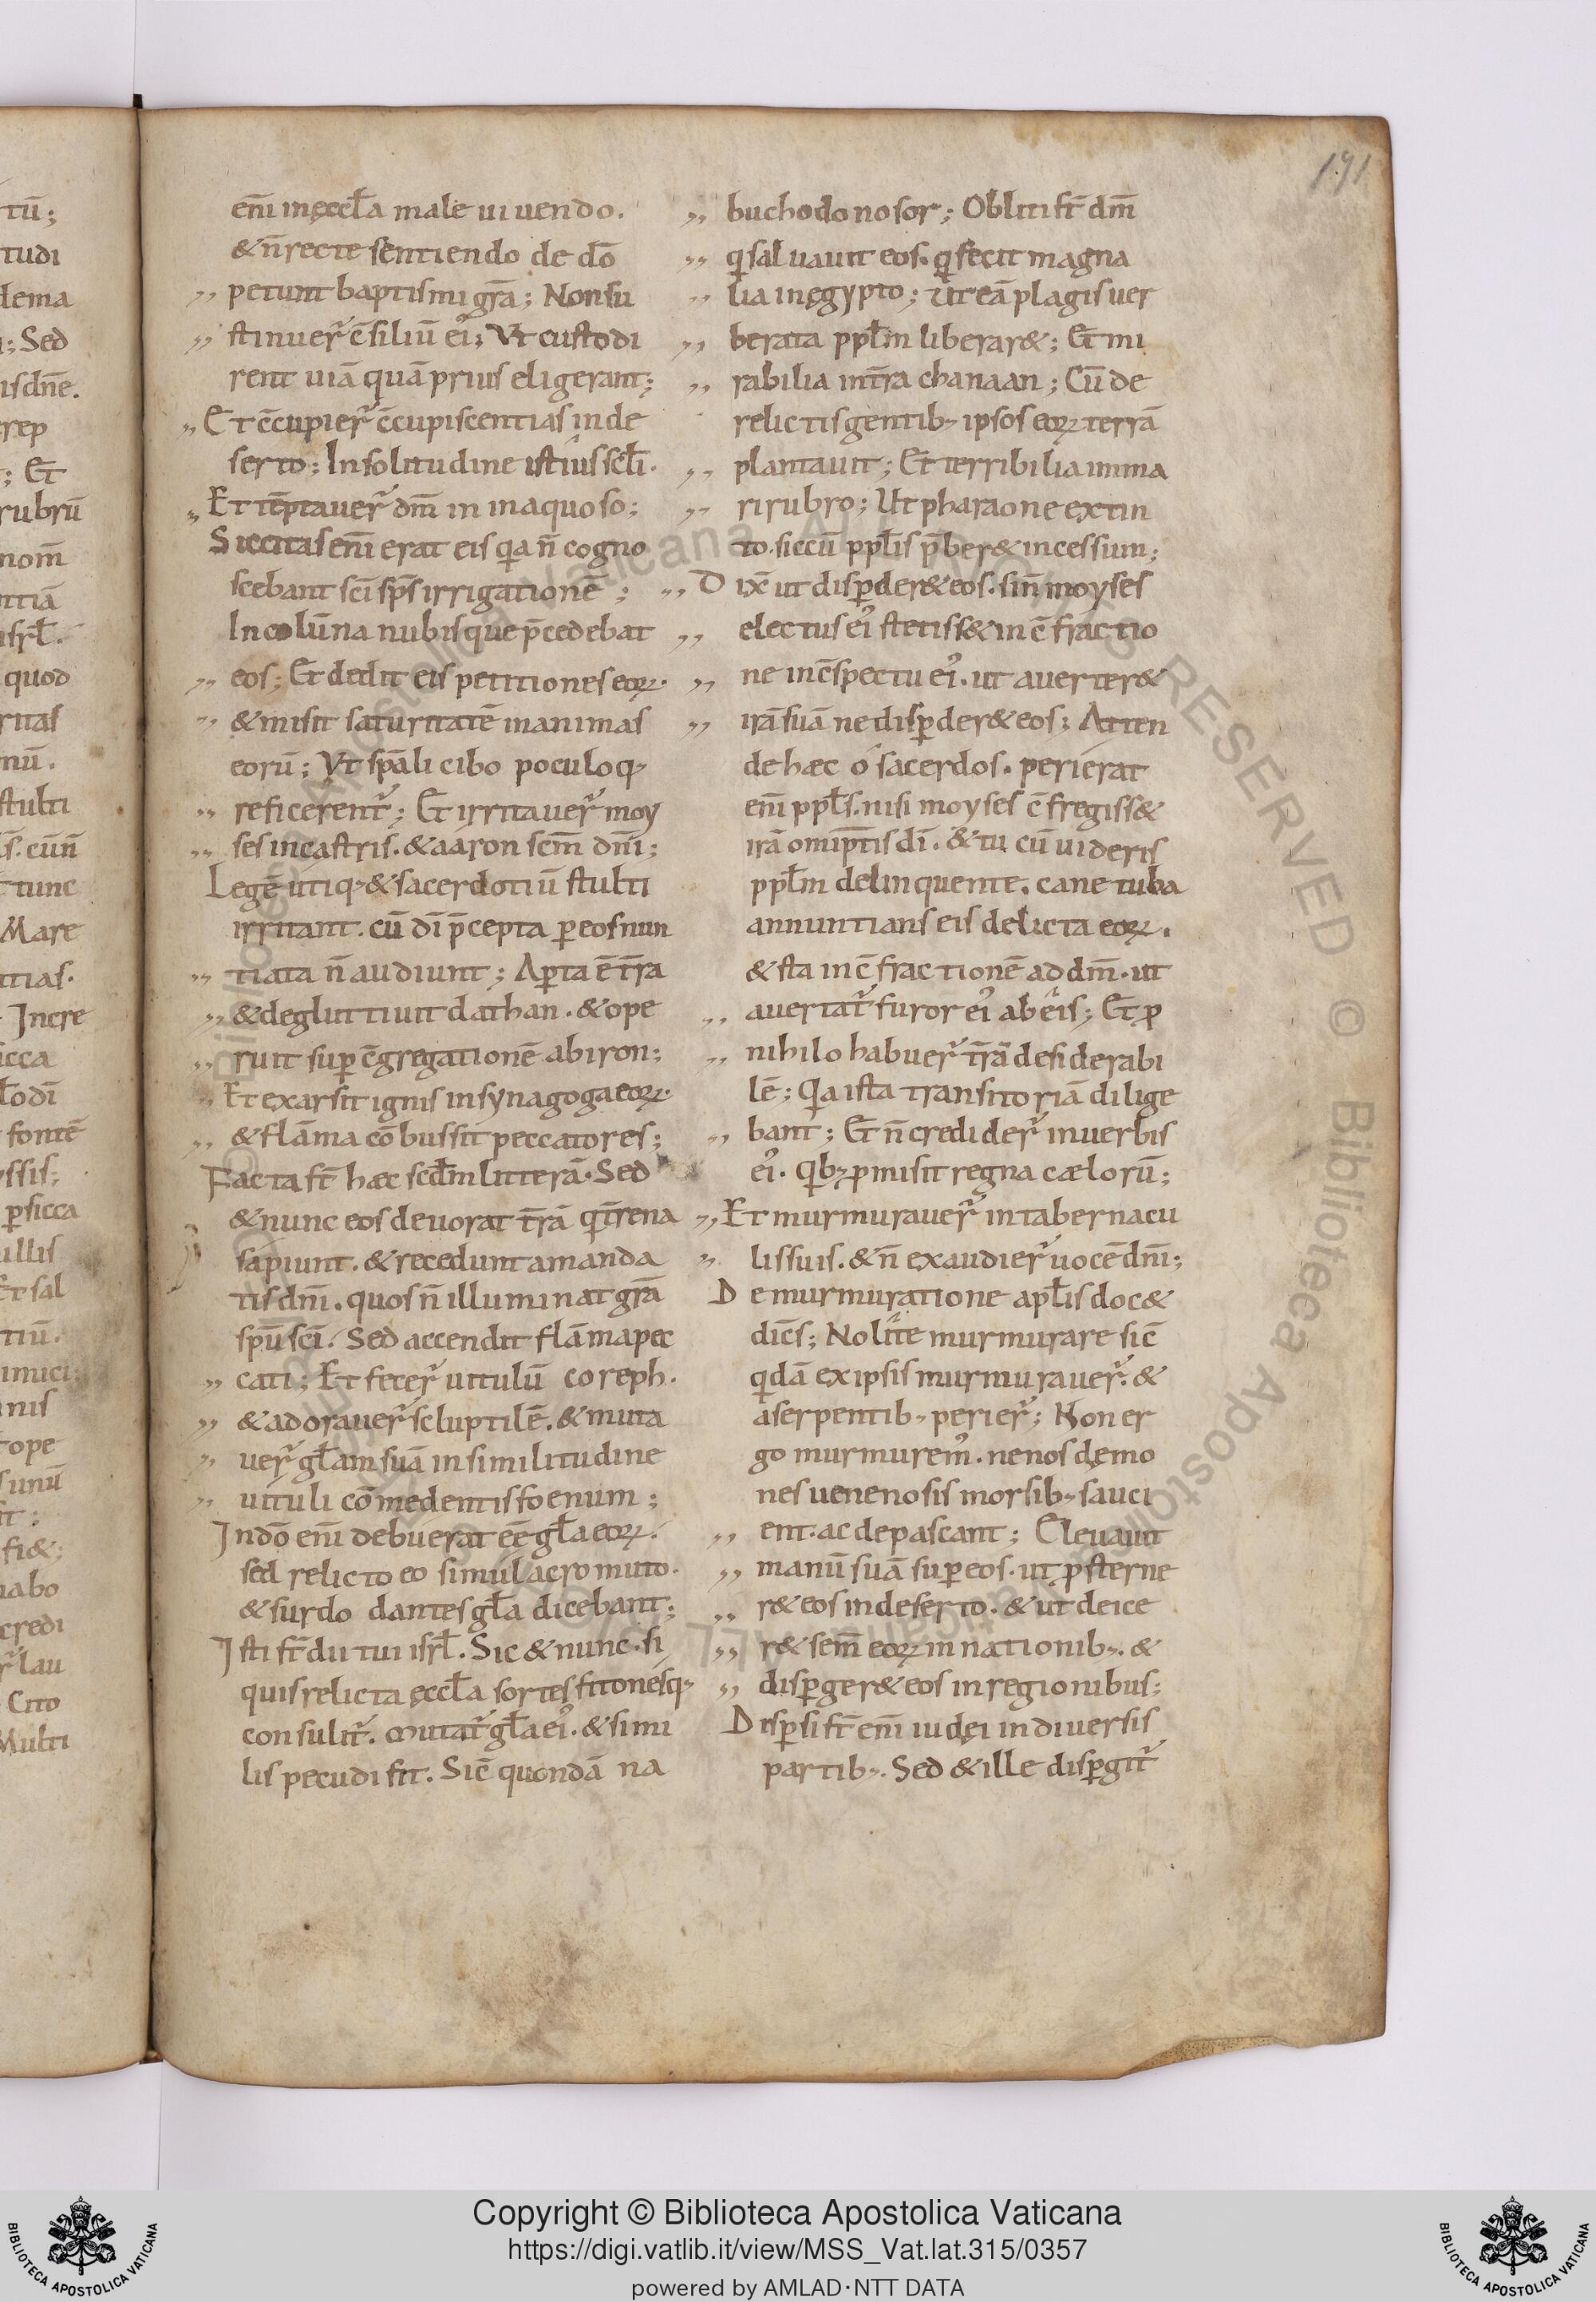 191
em̄ in ęccl̄a male uiuendo.
& n̄ recte sentiendo de dō
petunt baptismi grā; Non su
stinuer̄ c̄siliū ei᾿; Vt custodi
rent uiā quā prius eligerant;
Et c̄cupier̄ c̄cupiscentias in de
serto; In solitudine istius scl̄i.
Et tēptauer̄ dm̄ in inaquoso;
Siccitas em̄ erat eis qia n̄ cogno
scebant sc̄i sp̄s irrigationē;
In colūna nubis que p̄cedebat
eos; Et dedit eis petitiones eoꝝ.
& misit saturitatē in animas
eorū; Vt sp̄ali cibo poculoq;
reficerent̄; Et irritauer̄ moy
ses in castris. & aaron scm̄ dn̄i;
Legē utiq; & sacerdotiū stulti
irritant. cū dī p̄cepta ꝑ eos nun
tiata n̄ audiunt; Aꝑta ē tr̄a
& degluttiuit dathan. & ope
ruit suꝑ c̄gregationē abiron;
Et exarsit ignis in synagoga eoꝝ.
& flāma cōbussit peccatores;
Facta st̄ hæc scdm̄ litterā. Sed
& nunc eos deuorat tr̄ā q tr̄rena
sapiunt. & recedunt a manda
tis dn̄i. quos n̄ illuminat grā
sp̄u sc̄i. Sed accendit flāma pec
cati; Et fecer̄ uitulū coreph.
& adorauer̄ scluptilē. & muta
uer̄ gl̄am suā in similitudine
uituli cōmedentis foenum;
In dō em̄ debuerat ēē gl̄a eoꝝ.
sed relicto eo simulacro muto.
& surdo dantes gl̄a dicebant;
Isti st̄ dii tui isrl̄. Sic & nunc. si
quis relicta ęccl̄a sortes fitonesq;
consulit̄. mutat̄ gl̄a ei᾿. & simi
lis pecudi fit. Sic̄ quondā na
buchodonosor; Obliti st̄ dm̄
q saluauit eos. q fecit magna
lia in ęgypto; Ut eā plagis uer
berata ppl̄m liberar&; Et mi
rabilia in tr̄a chanaan; Cū de
relictis gentib; ipsos eoꝝ terrā
plantauit; Et terribilia in ma
ri rubro; Ut pharaone extin
to. siccū ppl̄is p̄ber& incessum;
Dix̄ ut disꝑder& eos. sin̄ moyses
electus ei᾿ stetiss& in c̄fractio
ne in c̄spectu ei᾿. ut auerter&
irā suā ne disꝑder& eos; Atten
de hæc o sacerdos. perierat
em̄ ppl̄s. nisi moyses c̄fregiss&
irā omip̄tis dī. & tu cū uideris
ppl̄m delinquente. cane tuba
annuntians eis delicta eoꝝ.
& sta in c̄fractionē ad dm̄. ut
auertat̄ furor ei᾿ ab eis; Et ꝓ
nihilo habuer̄ tr̄ā desiderabi
lē; Qia ista transitoriā dilige
bant; Et n̄ credider̄ in uerbis
ei᾿. Qib; ꝓmisit regna cælorū;
Et murmurauer̄ in tabernacu
lis suis. & n̄ exaudier̄ uocē dn̄i;
De murmuratione apl̄is doc&
dic̄s; Nolite murmurare sic̄
qidā ex ipsis murmurauer̄. &
a serpentib; perier̄; Non er
go murmurem᾿. ne nos dęmo
nes uenenosis morsib; sauci
ent. ac depascant; Eleuauit
manū suā suꝑ eos. ut ꝓsterne
r& eos in deserto. & ut deice
r& sem̄ eoꝝ in nationib;. &
disꝑger& eos in regionibus;
Disꝑsi st̄ em̄ iudęi in diuersis
partib;. Sed & ille disꝑgit̄
Copyright © Biblioteca Apostolica Vaticana
https://digi.vatlib.it/view/MSS_Vat.lat.315/0357
powered by AMLAD·NTT DATA